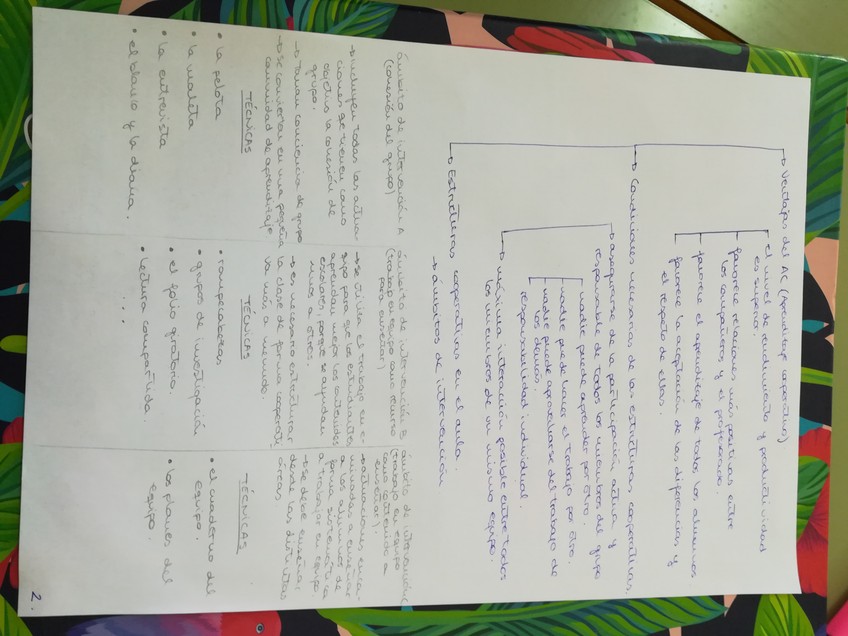 → Ventajas del AC (Aprendizaje cooperativo)
el nivel de rendimiento y productividad
es superior.
favorece relaciones más positivas entre
los compañeros y el profesorado.
favorece el aprendizaje de todos los alumnos
favorece la aceptación de las diferencias y
el respeto de ellas.
→ Condiciones necesarias de las estructuras cooperativas.
→ asegurarse de la participación activa y
responsable de todos los miembros del grupo
nadie puede aprender por otro.
nadie puede hacer el trabajo por otro.
nadie puede aprovecharse del trabajo de
los demás.
responsabilidad individual.
→ máxima interacción posible entre todos
los miembros de un mismo equipo.
→ Estructuras cooperativas en el aula.
→ ámbitos de intervención
ámbito de intervención A
(cohesión del grupo)
→ incluyen todas las actua-
ciones que tienen como
objetivo la cohesión de
grupo.
→ toman conciencia de grupo
→ se convierten en una pequeña
comunidad de aprendizaje
TÉCNICAS
• la pelota
• la maleta
• la entrevista
• el blanco y la diana.
ámbito de intervención B
(trabajo en equipo como recurso
para enseñar)
→ se utiliza el trabajo en e-
quipo para que los estudiantes
aprendan mejor los contenidos
escolares, porque se ayudan
unos a otros.
→ es necesario estructurar
la clase de forma coopera
va más a menudo.
TÉCNICAS
• rompecabezas
• grupos de investigación
• el folio giratorio.
• lectura compartida.
....
ámbito de intervención C
(trabajo en equipo
como contenido a
enseñar).
→ actuaciones enca-
minadas a enseñar
a los alumnos de
forma sistemática
a trabajar en equipo.
→ se debe enseñar
desde las distintas
áreas.
TÉCNICAS
• el cuaderno del
equipo.
• los planes del
equipo.
2.